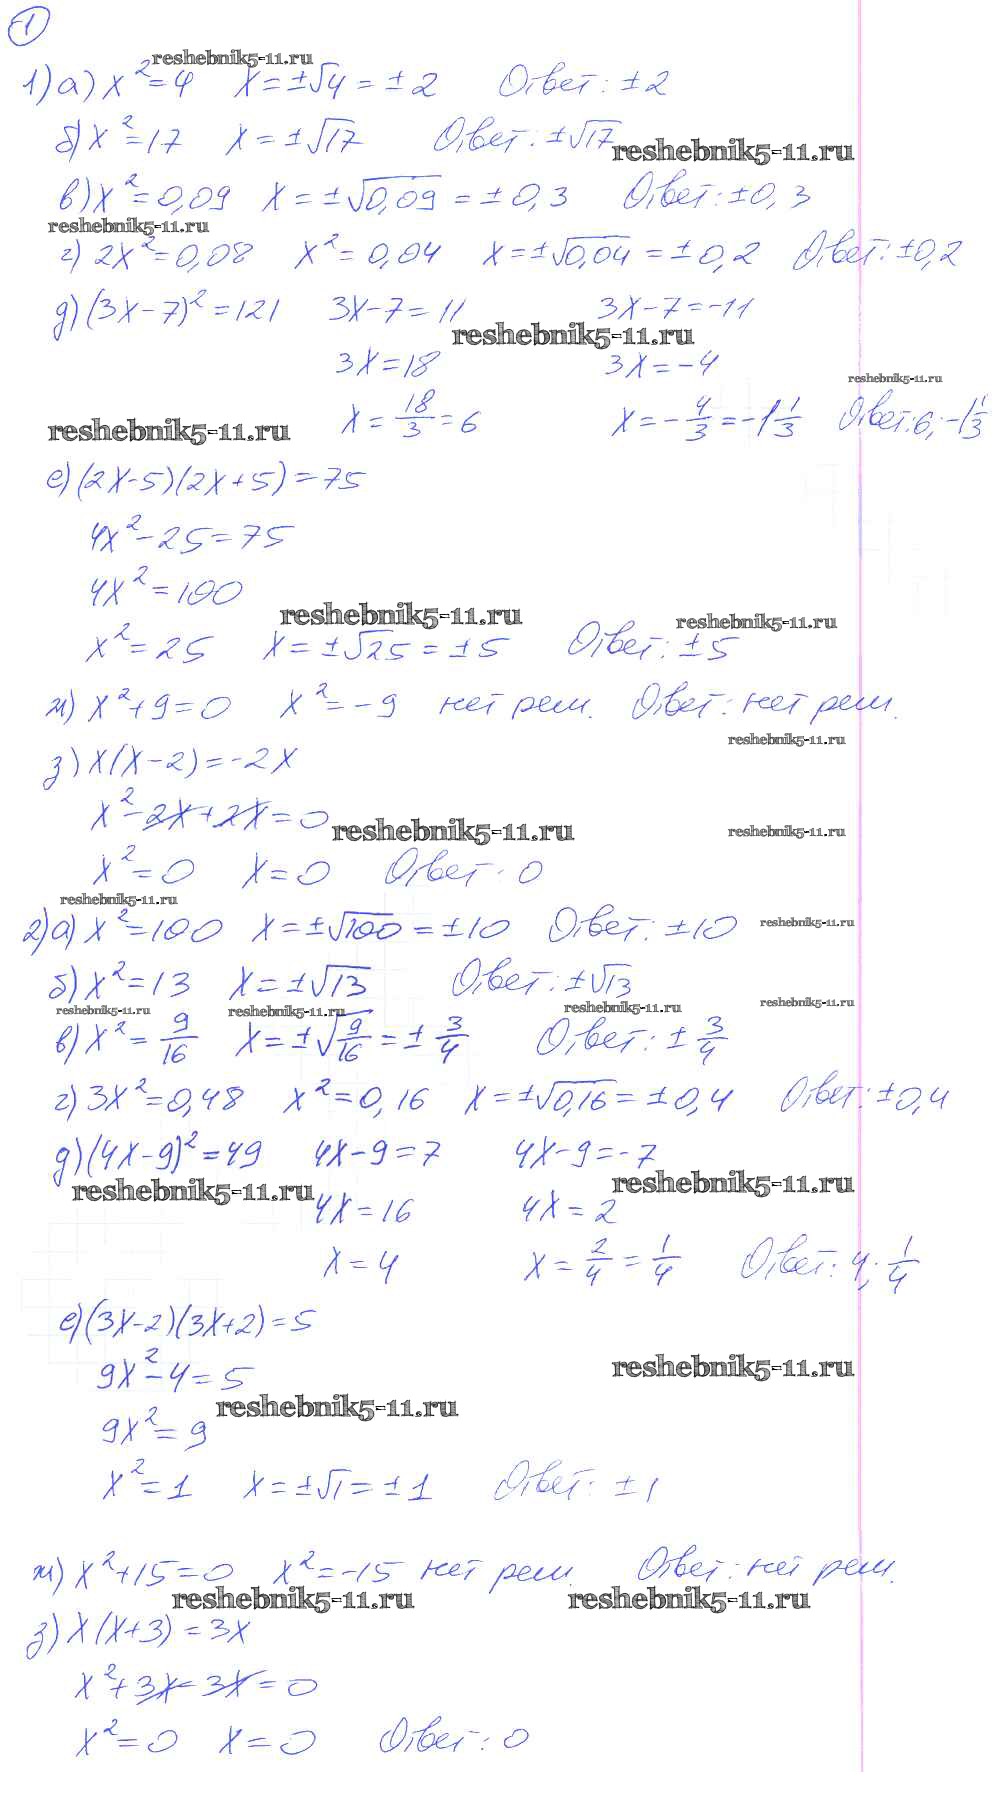 1
reshebnik5-11.ru
1) а) x² = 4 x = ±√4 = ±2 Ответ: ±2
б) x² = 17 x = ±√17 Ответ: ±√17
reshebnik5-11.ru
в) x² = 0,09 x = ±√0,09 = ±0,3 Ответ: ±0,3
reshebnik5-11.ru
г) 2x² = 0,08 x² = 0,04 x = ±√0,04 = ±0,2 Ответ: ±0,2
д) (3x-7)² = 121 3x-7 = 11 3x-7 = -11
reshebnik5-11.ru
3x = 18 3x = -4
reshebnik5-11.ru
x = 18/3 = 6 x = -4/3 = -1 1/3 Ответ: 6; -1 1/3
reshebnik5-11.ru
е) (2x-5)(2x+5) = 75
4x² - 25 = 75
4x² = 100
reshebnik5-11.ru reshebnik5-11.ru
x² = 25 x = ±√25 = ±5 Ответ: ±5
ж) x² + 9 = 0 x² = -9 нет реш. Ответ: нет реш.
reshebnik5-11.ru
з) x(x-2) = -2x
x² - 2x + 2x = 0
reshebnik5-11.ru reshebnik5-11.ru
x² = 0 x = 0 Ответ: 0
reshebnik5-11.ru
2) а) x² = 100 x = ±√100 = ±10 Ответ: ±10
reshebnik5-11.ru
б) x² = 13 x = ±√13 Ответ: ±√13
reshebnik5-11.ru reshebnik5-11.ru reshebnik5-11.ru reshebnik5-11.ru
в) x² = 9/16 x = ±√9/16 = ±3/4 Ответ: ±3/4
г) 3x² = 0,48 x² = 0,16 x = ±√0,16 = ±0,4 Ответ: ±0,4
д) (4x-9)² = 49 4x-9 = 7 4x-9 = -7
reshebnik5-11.ru reshebnik5-11.ru
4x = 16 4x = 2
x = 4 x = 2/4 = 1/4 Ответ: 4; 1/4
е) (3x-2)(3x+2) = 5
9x² - 4 = 5
reshebnik5-11.ru
reshebnik5-11.ru
9x² = 9
x² = 1 x = ±√1 = ±1 Ответ: ±1
ж) x² + 15 = 0 x² = -15 нет реш. Ответ: нет реш.
reshebnik5-11.ru reshebnik5-11.ru
з) x(x+3) = 3x
x² + 3x - 3x = 0
x² = 0 x = 0 Ответ: 0